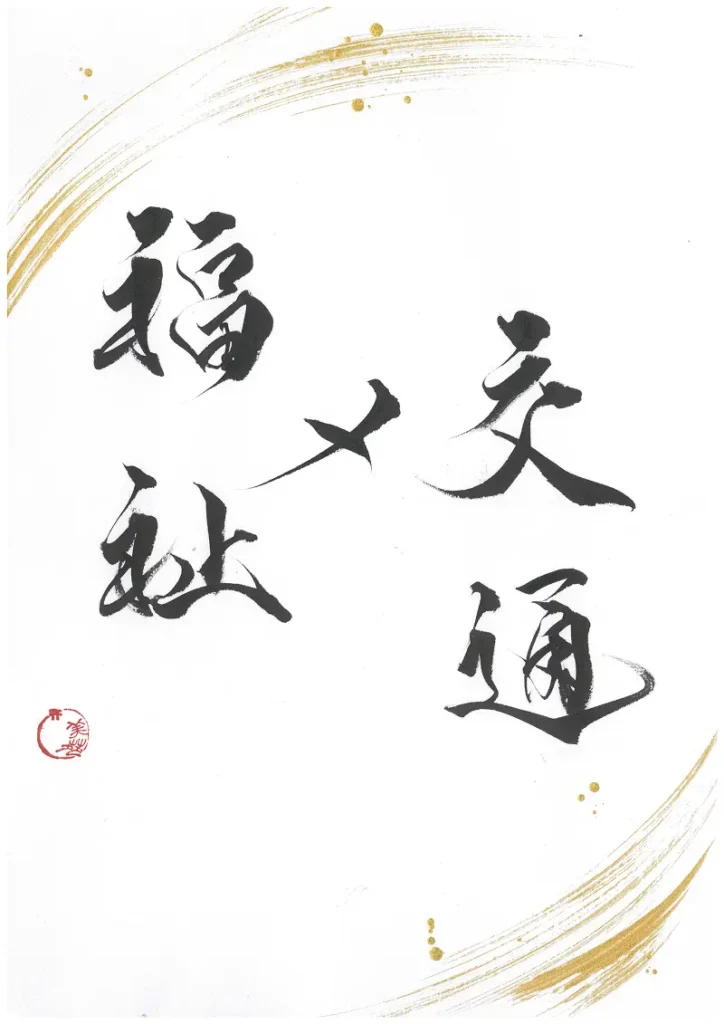 交通
×
福祉